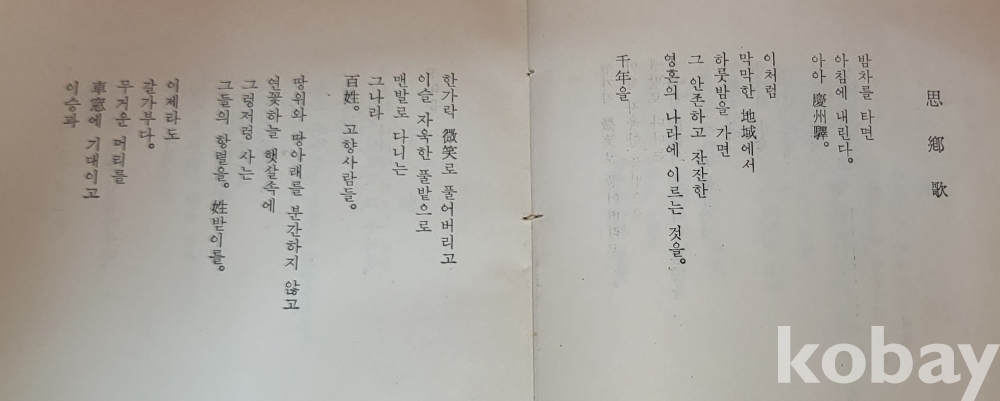 思鄕歌
밤차를 타면
아침에 내린다。
아아 慶州驛。
이처럼
막막한 地域에서
하룻밤을 가면
그 안존하고 잔잔한
영혼의 나라에 이르는 것을。
千年을
한가락 微笑로 풀어버리고
이슬 자욱한 풀밭으로
맨발로 다니는
그나라
百姓。 고향사람들。
땅위와 땅아래를 분간하지 않고
연꽃하늘 햇살속에
그렁저렁 사는
그들의 항렬을。 姓받이를。
이제라도
갈가부다。
무거운 머리를
車窓에 기대이고
이승과
kobay